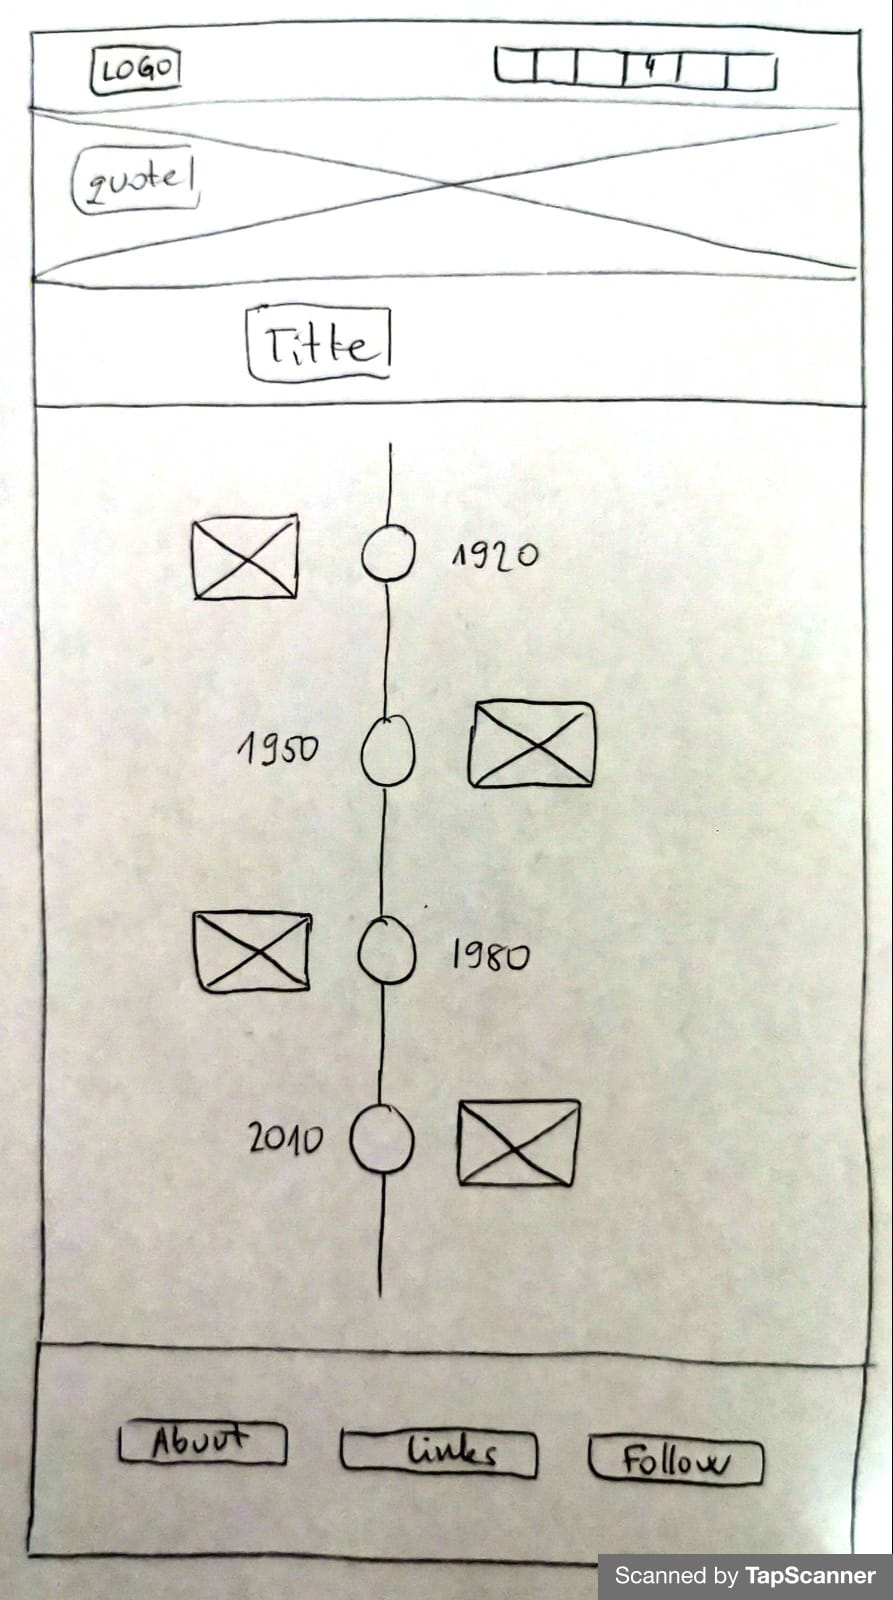 LOGO
4
quote
Title
1920
1950
1980
2010
About
Links
Follow
Scanned by TapScanner